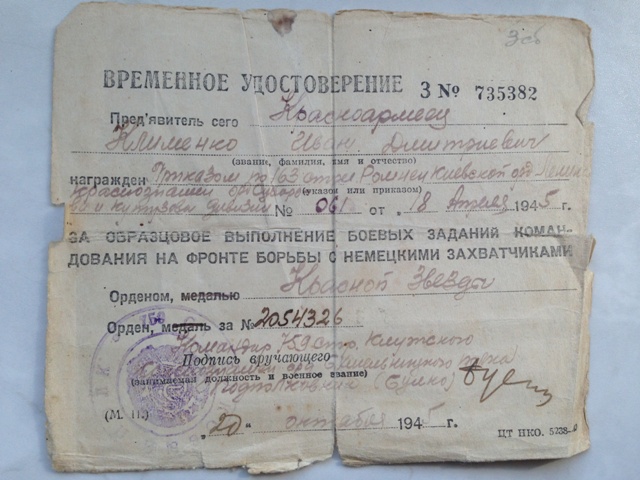 Зсб
ВРЕМЕННОЕ УДОСТОВЕРЕНИЕ З № 735382
Пред'явитель сего Красноармеец
Клименко Иван Дмитриевич
(звание, фамилия, имя и отчество)
награжден Приказом по 163 стр Ромнен Киевской орд Ленина
Краснознамен орд Суворо (указом или приказом)
ва и Кутузова дивизии № 061 от „18 Апреля 1945 г.
ЗА ОБРАЗЦОВОЕ ВЫПОЛНЕНИЕ БОЕВЫХ ЗАДАНИЙ КОМАН-
ДОВАНИЯ НА ФРОНТЕ БОРЬБЫ С НЕМЕЦКИМИ ЗАХВАТЧИКАМИ
Орденом, медалью Красной Звезды
Орден, медаль за № 2054326
Командир 759 стр.
Подпись вручающего
Краснознамен орд Хмельницкого полка
(занимаемая должность и военное звание)
Подполковник
(М. П.)
„20" октября 1945 г.
ЦТ НКО. 5238